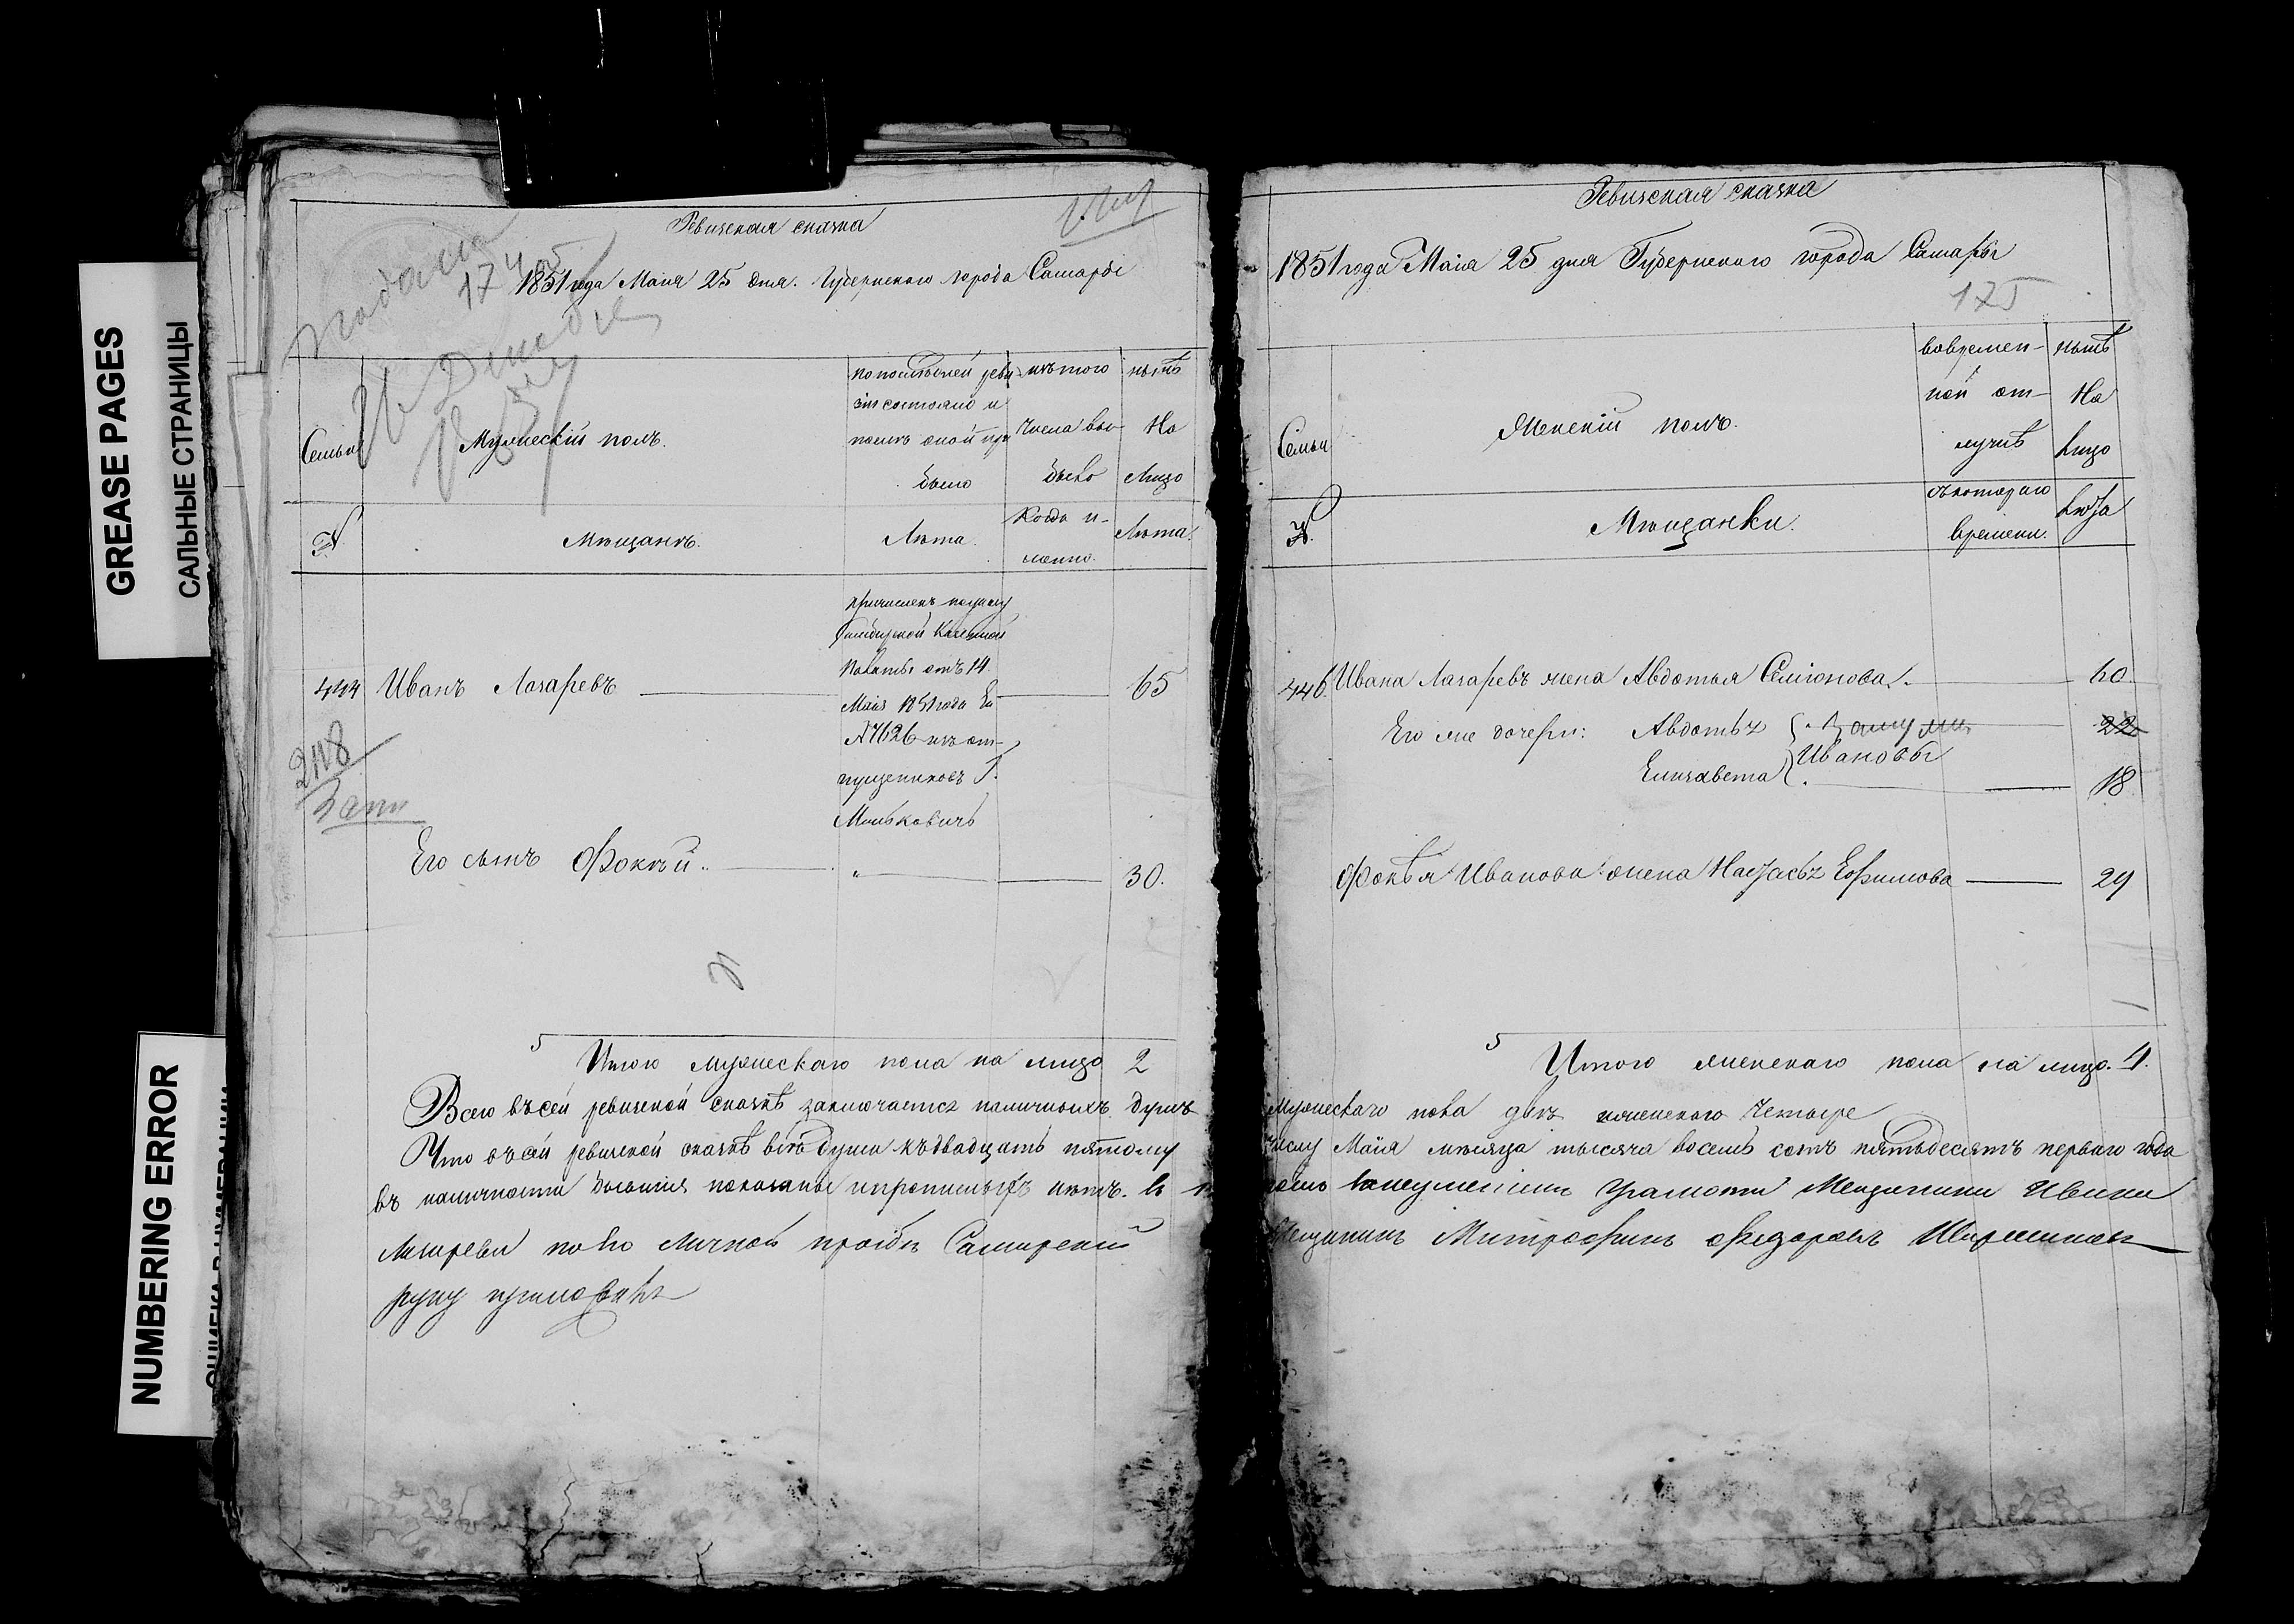 GREASE PAGES
САЛЬНЫЕ СТРАНИЦЫ
NUMBERING ERROR
Ревизская сказка
1851 года Маия 25 дня. Губернского города Самары
Семьи
Мужеский полъ.
по последней реви
зіи состояло и
после оной при
было
изъ того
числа вы
было
ныне
На
Лицо
№
Мещанъ.
Лета.
Когда и
менно.
Лета.
444 Иванъ Лазаревъ
Причисленъ по указу
Симбирской Казенной
Палаты отъ 14
Маия 1851 года За
№ 7626 изъ от
пущенниковъ Г.
Мильковичъ
65
248
Его сынъ Фокей " 30.
5
Итого мужескаго пола на лицо 2
Всего въ сей ревизской сказке заключается наличныхъ душъ
Что в сей ревизской сказке все души къ двадцать пятому
въ наличности бывшия показаны и прописныхъ нетъ. В
Лазарева по его личной прозбе Самарский
руку приложилъ
Ревизская сказка
1851 года Маия 25 дня Губернского города Самары
175
Семьи
Женский полъ.
во времен-
ной от-
лучке
ныне
На
лицо
№
Мещанки.
съ котораго
времени.
Лета
446 Ивана Лазаревъ жена Авдотья Семионова. 60.
Его же дочери: Авдотья 22
Ивановы
Елизавета 18
Фокея Иванова жена Настасья Ефимова 29
5
Итого женскаго пола на лицо. 4.
Мужескаго пола две женскаго четыре
числу Маия месяца тысяча восемь сотъ пятьдесятъ перваго года
неумением грамоти Мещанина Ивана
Мещанинъ Митрофанъ Федоровъ